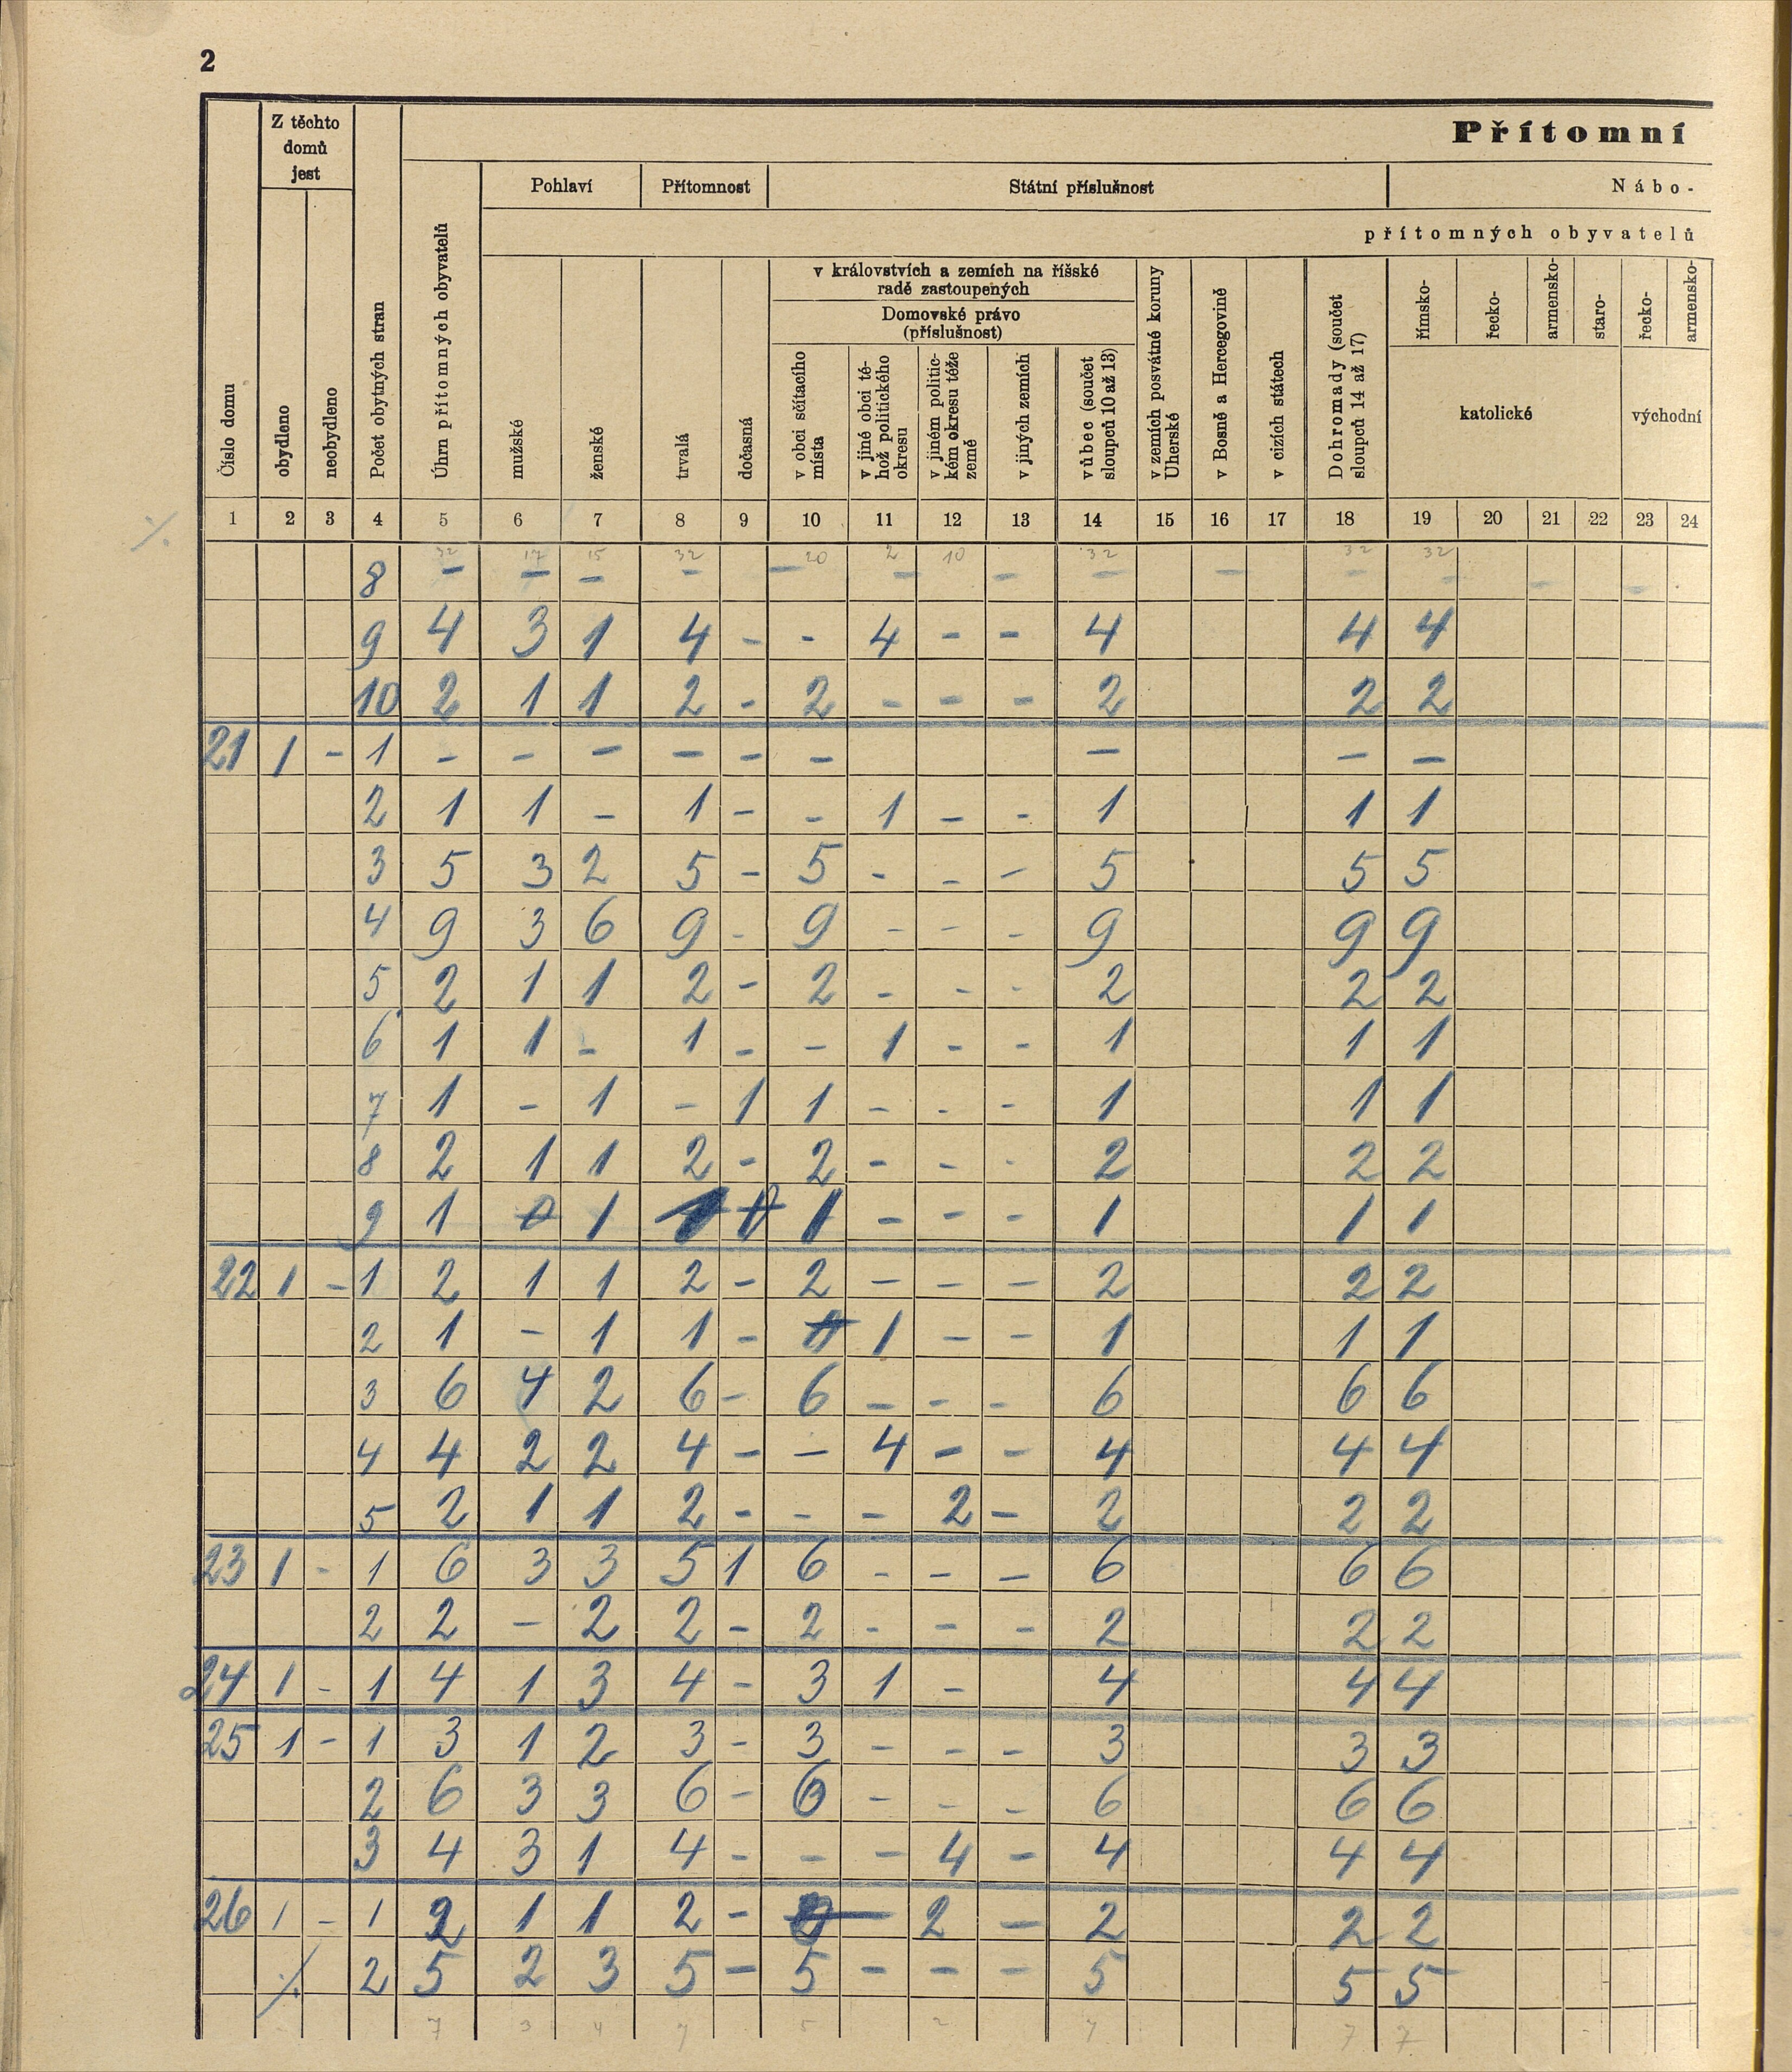 2
Z těchto domů jest
Přítomní
Pohlaví Přítomnost Státní příslušnost Nábo-
přítomných obyvatelů
v královstvích a zemích na říšské radě zastoupených
Domovské právo (příslušnost)
Číslo domu
obydleno
neobydleno
Počet obytných stran
Úhrn přítomných obyvatelů
mužské
ženské
trvalá
dočasná
v obci sčítacího místa
v jiné obci téhož politického okresu
v jiném politickém okresu téže země
v jiných zemích
vůbec (součet sloupců 10 až 13)
v zemích posvátné koruny Uherské
v Bosně a Hercegovině
v cizích státech
Dohromady (součet sloupců 14 až 17)
římsko-
řecko-
armensko-
staro-
řecko-
armensko-
katolické
východní
1 2 3 4 5 6 7 8 9 10 11 12 13 14 15 16 17 18 19 20 21 22 23 24
32 17 15 32 20 2 10 32 32 32
8 - - - - - - - - - - - - -
9 4 3 1 4 - - 4 - - 4 4 4
10 2 1 1 2 - 2 - - - 2 2 2
21 1 - 1 - - - - - - - - -
2 1 1 - 1 - - 1 - - 1 1 1
3 5 3 2 5 - 5 - - - 5 5 5
4 9 3 6 9 - 9 - - - 9 9 9
5 2 1 1 2 - 2 - - - 2 2 2
6 1 1 - 1 - - 1 - - 1 1 1
7 1 - 1 - 1 1 - - - 1 1 1
8 2 1 1 2 - 2 - - - 2 2 2
9 1 0 1 1 1 - - - 1 1 1
22 1 - 1 2 1 1 2 - 2 - - - 2 2 2
2 1 - 1 1 - 1 - - 1 1 1
3 6 4 2 6 - 6 - - - 6 6 6
4 4 2 2 4 - - 4 - - 4 4 4
5 2 1 1 2 - - - 2 - 2 2 2
23 1 - 1 6 3 3 5 1 6 - - - 6 6 6
2 2 - 2 2 - 2 - - - 2 2 2
24 1 - 1 4 1 3 4 - 3 1 - 4 4 4
25 1 - 1 3 1 2 3 - 3 - - - 3 3 3
2 6 3 3 6 - 6 - - - 6 6 6
3 4 3 1 4 - - - 4 - 4 4 4
26 1 - 1 2 1 1 2 - 2 - 2 2 2
2 5 2 3 5 - 5 - - - 5 5 5
7 3 4 7 5 2 7 7 7